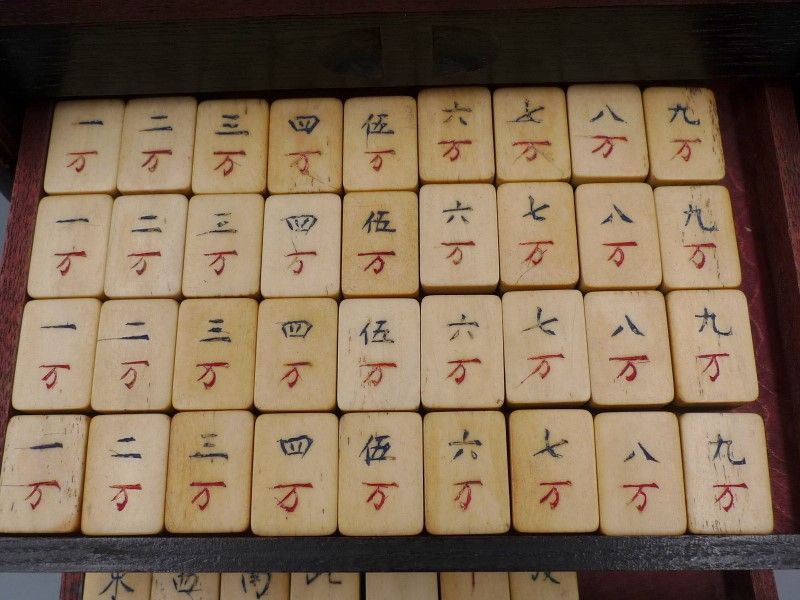 一 二 三 四 伍 六 七 八 九
万 万 万 万 万 万 万 万 万
一 二 三 四 伍 六 七 八 九
万 万 万 万 万 万 万 万 万
一 二 三 四 伍 六 七 八 九
万 万 万 万 万 万 万 万 万
一 二 三 四 伍 六 七 八 九
万 万 万 万 万 万 万 万 万
東 西 南 北